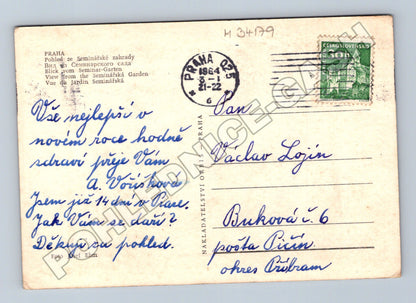 H 34179
PRAHA
Pohled ze Seminářské zahrady
Вид из Семинарского сада
Blick vom Seminar-Garten
View from the Seminářská Garden
Vue du Jardin Seminářská
PRAHA 025
1964
3-1
21-22
6
ČESKOSLOVENSKO
30h
Vše nejlepší v
novém roce hodně
zdraví přeje Vám
A. Voříšková
Jsem již 14 dní v Praze.
Jak Vám se daří?
Děkuji za pohled.
Pan
Vaclav Lojín
Buková č. 6
pošta Pičín
okres Příbram
NAKLADATELSTVÍ ORBIS PRAHA
POHLEDNICE-GALI